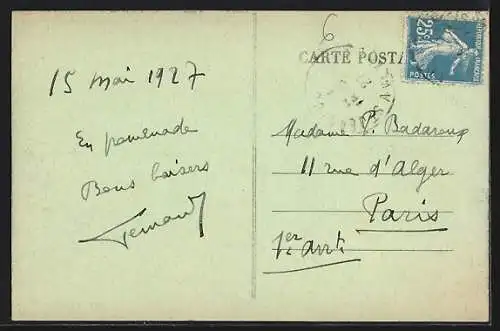 6
CARTE POSTA
25c
POSTES
15 mai 1927
En promenade
Bons baisers
Fernand
Madame P. Badaroux
11 rue d'Alger
Paris
1er arrt